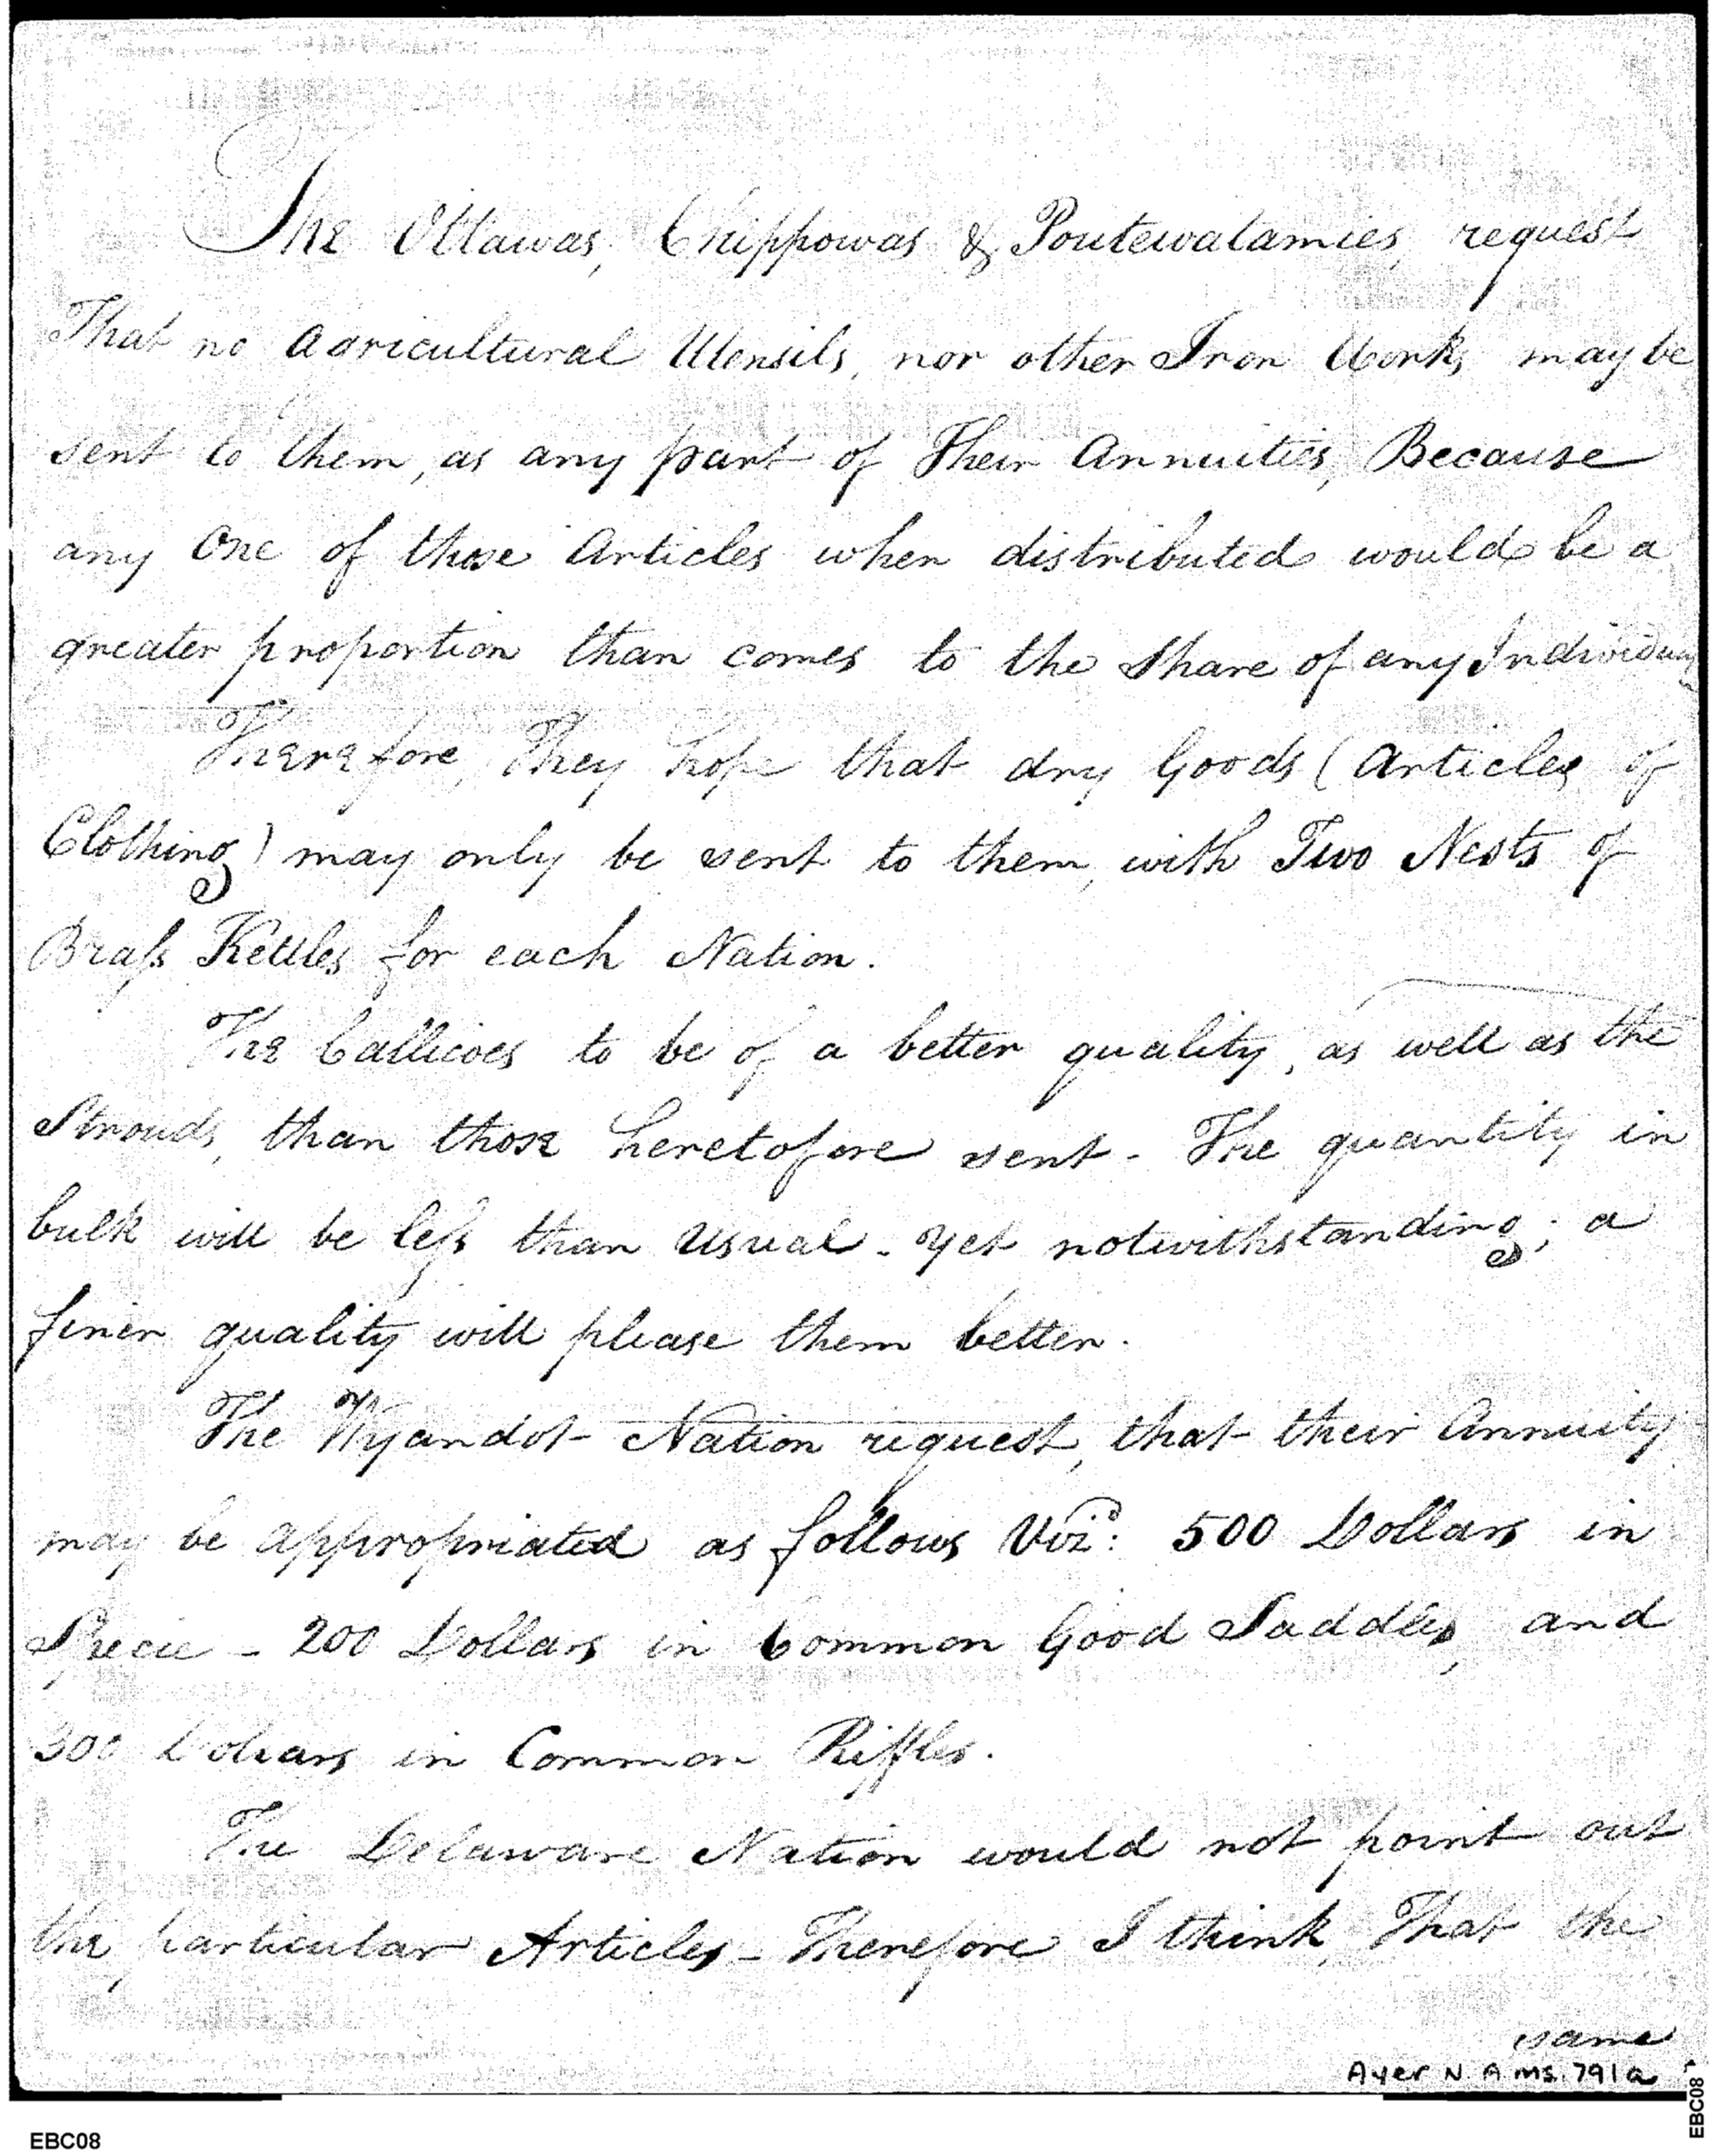 The Ottawas, Chippowas & Poutewatamies, request
That no agricultural Utensils, nor other Iron Work, may be
sent to them, as any part of Their Annuities, Because
any One of those Articles when distributed would be a
greater proportion than comes to the Share of any Individual
Therefore, They hope that dry Goods (Articles of
Clothing) may only be sent to them, with Two Nests of
Brass Kettles for each Nation.
The Callicoes to be of a better quality, as well as the
Strouds, than those heretofore sent - The quantity in
bulk will be less than Usual - yet notwithstanding; a
finer quality will please them better.
The Wyandot Nation request, that their Annuity
may be appropriated as follows Viz: 500 Dollars in
Specie - 200 Dollars in Common Good Saddles, and
300 Dollars in Common Riffles.
The Delaware Nation would not point out
the particular Articles - Therefore I think, That the
same
Ayer N. A ms. 791a
EBC08
EBC08